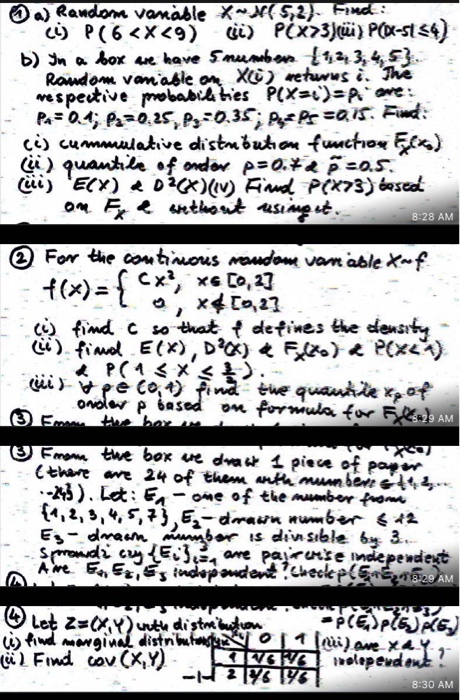 ① a) Random variable X~N(5,2). Find:
(i) P(6<X<9) (ii) P(X>3) (iii) P(|X-5|≤4)
b) In a box we have 5 numbers {1,2,3,4,5}.
Random variable on X(i) returns i. The
respective probabilities P(X=i)=Pi are:
P1=0.1; P2=0.25, P3=0.35; P4=P5=0.15. Find:
(i) cummulative distribution function Fx(x0)
(ii) quantile of order p=0.7 & p̃=0.5
(iii) E(X) & D²(X) (iv) Find P(X>3) based
on Fx & without using it.
8:28 AM
② For the continuous random variable X~f
f(x) = { Cx², x∈[0,2]
0, x∉[0,2]
(i) find C so that f defines the density
(ii) find E(X), D²(X) & Fx(x0) & P(X<1)
& P(1≤X≤3/2).
(iii) ∀p∈(0,1) find the quantile xp of
order p based on formula for Fx(x0)
8:29 AM
③ From the box we draw 1 piece of paper
(there are 24 of them with numbers {1,2,
...24}). Let: E1 - one of the number from
{1,2,3,4,5,7}, E2 - drawn number ≤12
E3 - drawn number is divisible by 3.
Sprawdź czy {Ei}³i=1 are pairwise independent
Are E1, E2, E3 independent? Check P(E1∩E2∩E3)
8:29 AM
= P(E1)P(E2)P(E3)
④ Let Z=(X,Y) with distribution
(i) find marginal distributions
(ii) Find cov(X,Y)
0 1
1 1/6 1/6
-1 2 1/6 1/6
(iii) are X & Y
independent?
8:30 AM